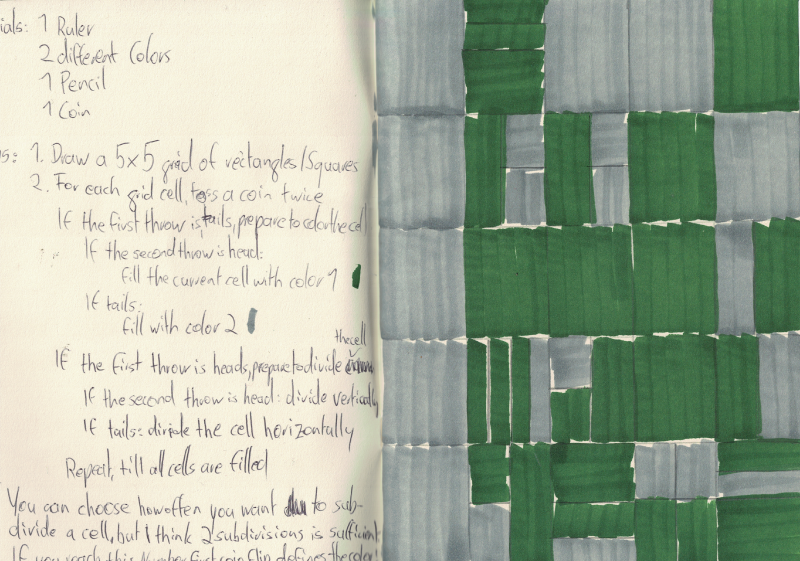 ials: 1 Ruler
2 different Colors
1 Pencil
1 Coin
s: 1. Draw a 5x5 grid of rectangles/Squares
2. For each grid cell, toss a coin twice
If the first throw is tails, prepare to color the cell
If the second throw is head:
fill the current cell with color 1
If tails:
fill with color 2
the cell
If the first throw is heads, prepare to divide
If the second throw is head: divide vertically
If tails: divide the cell horizontally
Repeat, till all cells are filled
You can choose how often you want to sub-
divide a cell, but I think 2 subdivisions is sufficient
If you reach this Number first coin flip defines the color